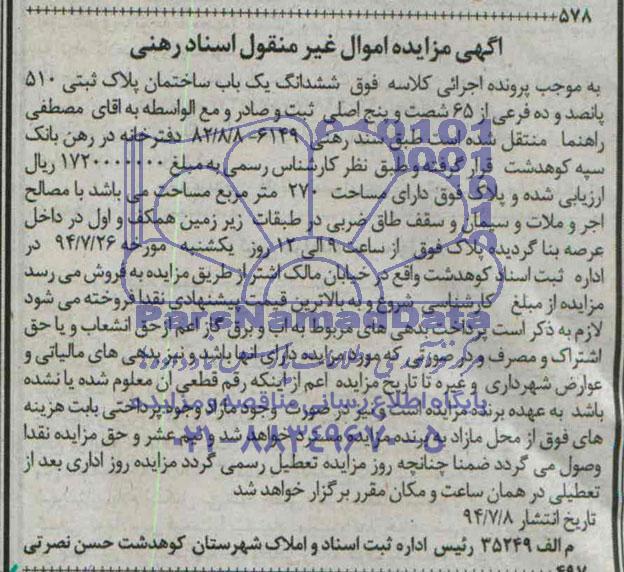 ۵۷۸
اگهی مزایده اموال غیر منقول اسناد رهنی
به موجب پرونده اجرائی کلاسه فوق ششدانگ یک باب ساختمان پلاک ثبتی ۵۱۰
پانصد و ده فرعی از ۶۵ شصت و پنج اصلی ثبت و صادر و مع الواسطه به اقای مصطفی
راهنما منتقل شده است طبق سند رهنی ۶۱۴۹- ۸۲/۸/۸ دفترخانه در رهن بانک
سپه کوهدشت قرار گرفته و طبق نظر کارشناس رسمی به مبلغ ۱۷۲۰۰۰۰۰۰۰ ریال
ارزیابی شده و پلاک فوق دارای مساحت ۲۷۰ متر مربع مساحت می باشد با مصالح
اجر و ملات و سیمان و سقف طاق ضربی در طبقات زیر زمین همکف و اول در داخل
عرصه بنا گردیده پلاک فوق از ساعت ۹ الی ۱۲ روز یکشنبه مورخه ۹۴/۷/۲۶ در
اداره ثبت اسناد کوهدشت واقع در خیابان مالک اشتر از طریق مزایده به فروش می رسد
مزایده از مبلغ کارشناسی شروع و به بالاترین قیمت پیشنهادی نقدا فروخته می شود
لازم به ذکر است پرداخت بدهی های مربوط به اب و برق گاز اعم از حق انشعاب و یا حق
اشتراک و مصرف و در صورتی که مورد مزایده دارای انها باشد و نیز بدهی های مالیاتی و
عوارض شهرداری و غیره تا تاریخ مزایده اعم از اینکه رقم قطعی ان معلوم شده یا نشده
باشد به عهده برنده مزایده است و نیز در صورت وجود مازاد وجوه پرداختی بابت هزینه
های فوق از محل مازاد به برنده مزایده مسترد خواهد شد و نیم عشر و حق مزایده نقدا
وصول می گردد ضمنا چنانچه روز مزایده تعطیل رسمی گردد مزایده روز اداری بعد از
تعطیلی در همان ساعت و مکان مقرر برگزار خواهد شد
تاریخ انتشار ۹۴/۷/۸
م الف ۳۵۲۴۹ رئیس اداره ثبت اسناد و املاک شهرستان کوهدشت حسن نصرتی
ParsNamadData
پایگاه اطلاع رسانی مناقصه و مزایده
۰۲۱-۸۸۳۴۹۶۷۰-۵